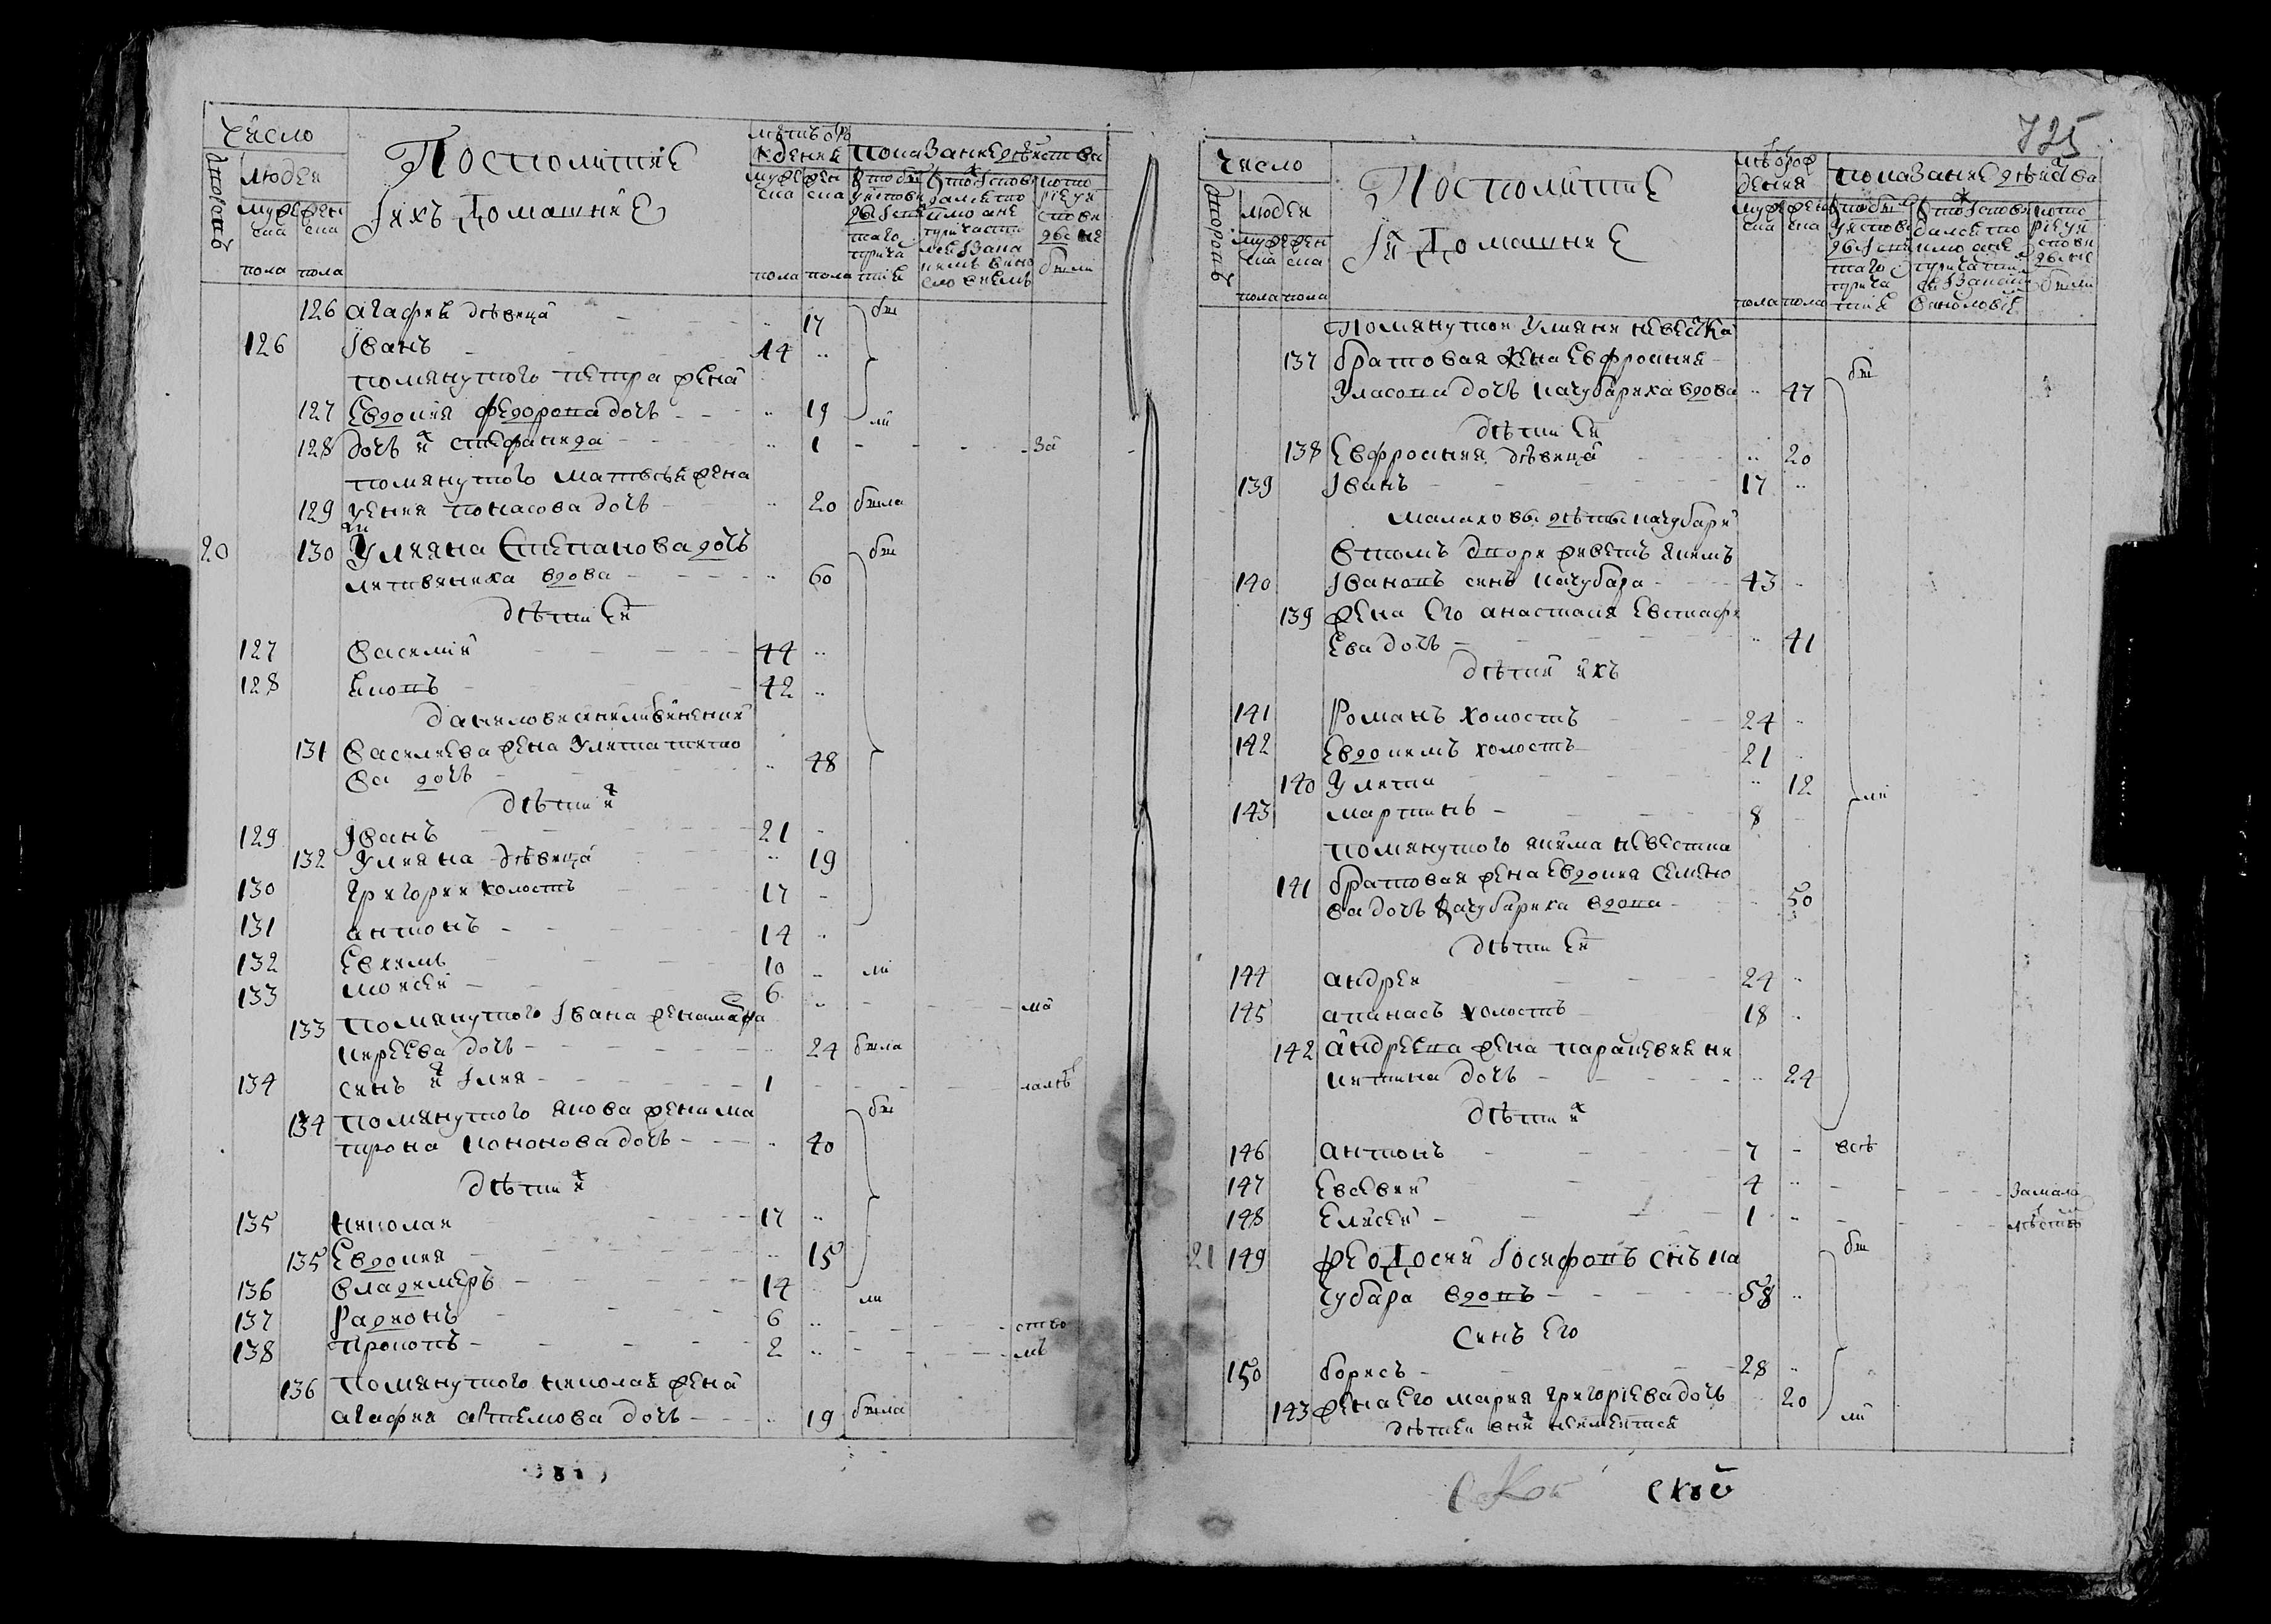 Число
дворовъ
людей
мужеска пола
женска пола
Посполитие
и ихъ Домашние
мужеска пола
женска пола
показание действа
126 Агафия девица 17 бы
126 Иванъ 14
помянутого Петра жена
127 Евдокия Федорова дочь 19 ли
128 дочь их Стефанида 1 за
помянутого Матвея жена
129 Ксения Понасова дочь 20 была
20 130 Улияна Степанова дочь бы
литвиниха вдова 60
дети Ея
127 Василий 44
128 Яковъ 42
131 Василиева жена Улита Тито
ва дочь 48
дети их
129 Иванъ 21
132 Улияна девица 19
130 Григорий холостъ 17
131 Антонъ 14
132 Евхимъ 10 ли
133 Моисей 6 ма
133 помянутого Ивана жена Марфа
Киреева дочь 24 была
134 синъ их Илия 1 лолѣ
134 помянутого Якова жена Ма бы
трона Кононова дочь 40
дѣти их
135 Николай 17
135 Евдокия 15
136 Владимеръ 14 ли
137 Радионъ 6 ство
138 Прокопъ 2 мъ
136 помянутого Николая жена
Агафия Артемова дочь 19 была
725
Число
дворовъ
людей
мужеска пола
женска пола
Посполитие
и их Домашние
мужеска пола
женска пола
показание действа
помянутой Улияни невестка
137 братовая жена Евфросиния бы
Уласова дочь Качубариха вдова 47
дѣти Ея
138 Евфросиния дѣвица 20
139 Иванъ 17
Малаховы дѣти Качубари
В томъ дворе живетъ Якимъ
140 Ивановъ синъ Качубара 43
139 жена Его Анастасия Евстафи
Ева дочь 41
дѣти ихъ
141 Романъ холостъ 24
142 Евдокимъ холостъ 21
140 Улита 12
143 Мартинъ 8 ли
помянутого Якима невестка
141 братовая жена Евдокия Семено
ва дочь Качубариха вдова 50
дѣти Ея
144 Андрей 24
145 Апанасъ холостъ 18
142 Андреева жена Параскевия Ни
китина дочь 24
дѣти их
146 Антонъ 7 всѣ
147 Евсевий 4 за мало
148 Елисей 1 лѣство
21 149 Феодосий Иосифовъ синъ Ка бы
чубара вдовъ 58
Синъ Его
150 Борисъ 28
143 жена Его Мария Григориева дочь 20 ли
дѣтей в них неимеится
ской
ской